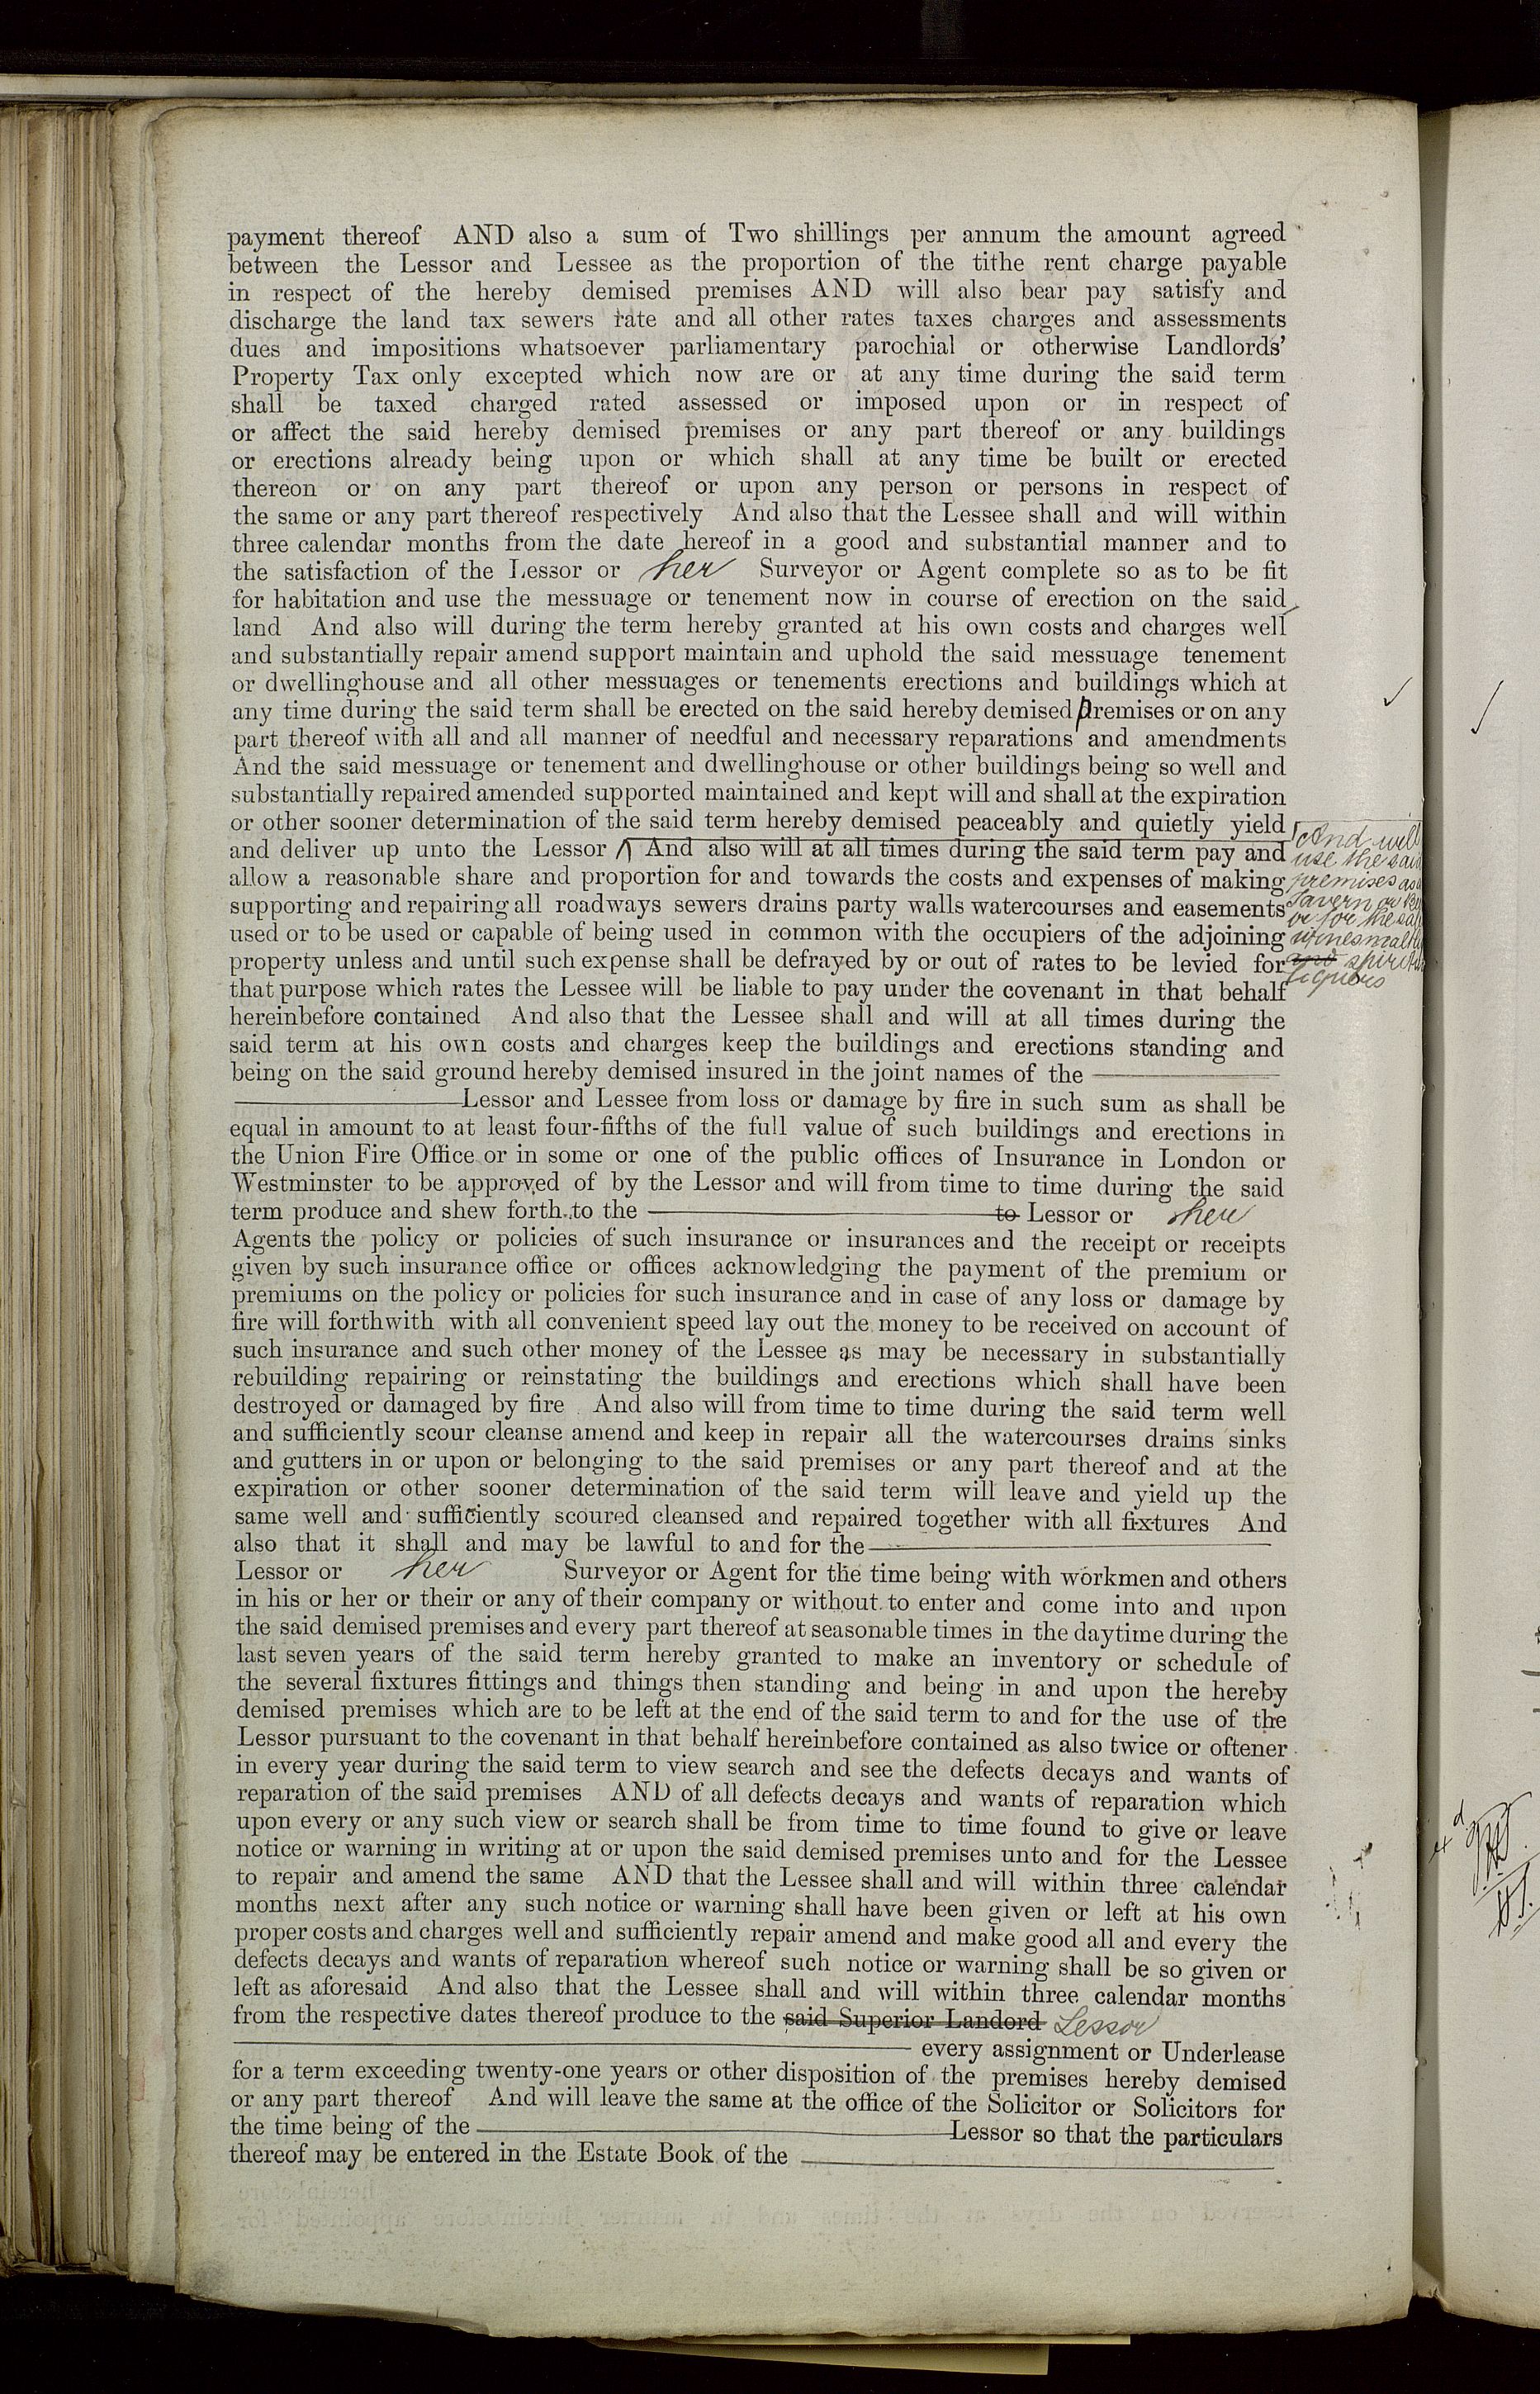 payment thereof AND also a sum of Two shillings per annum the amount agreed
between the Lessor and Lessee as the proportion of the tithe rent charge payable
in respect of the hereby demised premises AND will also bear pay satisfy and
discharge the land tax sewers rate and all other rates taxes charges and assessments
dues and impositions whatsoever parliamentary parochial or otherwise Landlords'
Property Tax only excepted which now are or at any time during the said term
shall be taxed charged rated assessed or imposed upon or in respect of
or affect the said hereby demised premises or any part thereof or any buildings
or erections already being upon or which shall at any time be built or erected
thereon or on any part thereof or upon any person or persons in respect of
the same or any part thereof respectively And also that the Lessee shall and will within
three calendar months from the date hereof in a good and substantial manner and to
the satisfaction of the Lessor or her Surveyor or Agent complete so as to be fit
for habitation and use the messuage or tenement now in course of erection on the said
land And also will during the term hereby granted at his own costs and charges well
and substantially repair amend support maintain and uphold the said messuage tenement
or dwellinghouse and all other messuages or tenements erections and buildings which at
any time during the said term shall be erected on the said hereby demised premises or on any
part thereof with all and all manner of needful and necessary reparations and amendments
And the said messuage or tenement and dwellinghouse or other buildings being so well and
substantially repaired amended supported maintained and kept will and shall at the expiration
or other sooner determination of the said term hereby demised peaceably and quietly yield
and deliver up unto the Lessor And also will at all times during the said term pay and
allow a reasonable share and proportion for and towards the costs and expenses of making
supporting and repairing all roadways sewers drains party walls watercourses and easements
used or to be used or capable of being used in common with the occupiers of the adjoining
property unless and until such expense shall be defrayed by or out of rates to be levied for
that purpose which rates the Lessee will be liable to pay under the covenant in that behalf
hereinbefore contained And also that the Lessee shall and will at all times during the
said term at his own costs and charges keep the buildings and erections standing and
being on the said ground hereby demised insured in the joint names of the
Lessor and Lessee from loss or damage by fire in such sum as shall be
equal in amount to at least four-fifths of the full value of such buildings and erections in
the Union Fire Office or in some or one of the public offices of Insurance in London or
Westminster to be approved of by the Lessor and will from time to time during the said
term produce and shew forth to the to Lessor or her
Agents the policy or policies of such insurance or insurances and the receipt or receipts
given by such insurance office or offices acknowledging the payment of the premium or
premiums on the policy or policies for such insurance and in case of any loss or damage by
fire will forthwith with all convenient speed lay out the money to be received on account of
such insurance and such other money of the Lessee as may be necessary in substantially
rebuilding repairing or reinstating the buildings and erections which shall have been
destroyed or damaged by fire And also will from time to time during the said term well
and sufficiently scour cleanse amend and keep in repair all the watercourses drains sinks
and gutters in or upon or belonging to the said premises or any part thereof and at the
expiration or other sooner determination of the said term will leave and yield up the
same well and sufficiently scoured cleansed and repaired together with all fixtures And
also that it shall and may be lawful to and for the
Lessor or her Surveyor or Agent for the time being with workmen and others
in his or her or their or any of their company or without to enter and come into and upon
the said demised premises and every part thereof at seasonable times in the daytime during the
last seven years of the said term hereby granted to make an inventory or schedule of
the several fixtures fittings and things then standing and being in and upon the hereby
demised premises which are to be left at the end of the said term to and for the use of the
Lessor pursuant to the covenant in that behalf hereinbefore contained as also twice or oftener
in every year during the said term to view search and see the defects decays and wants of
reparation of the said premises AND of all defects decays and wants of reparation which
upon every or any such view or search shall be from time to time found to give or leave
notice or warning in writing at or upon the said demised premises unto and for the Lessee
to repair and amend the same AND that the Lessee shall and will within three calendar
months next after any such notice or warning shall have been given or left at his own
proper costs and charges well and sufficiently repair amend and make good all and every the
defects decays and wants of reparation whereof such notice or warning shall be so given or
left as aforesaid And also that the Lessee shall and will within three calendar months
from the respective dates thereof produce to the said Superior Landord Lessor
every assignment or Underlease
for a term exceeding twenty-one years or other disposition of the premises hereby demised
or any part thereof And will leave the same at the office of the Solicitor or Solicitors for
the time being of the Lessor so that the particulars
thereof may be entered in the Estate Book of the
And will
use the said
premises as
Tavern or
or for the
wines malt
and
liquors